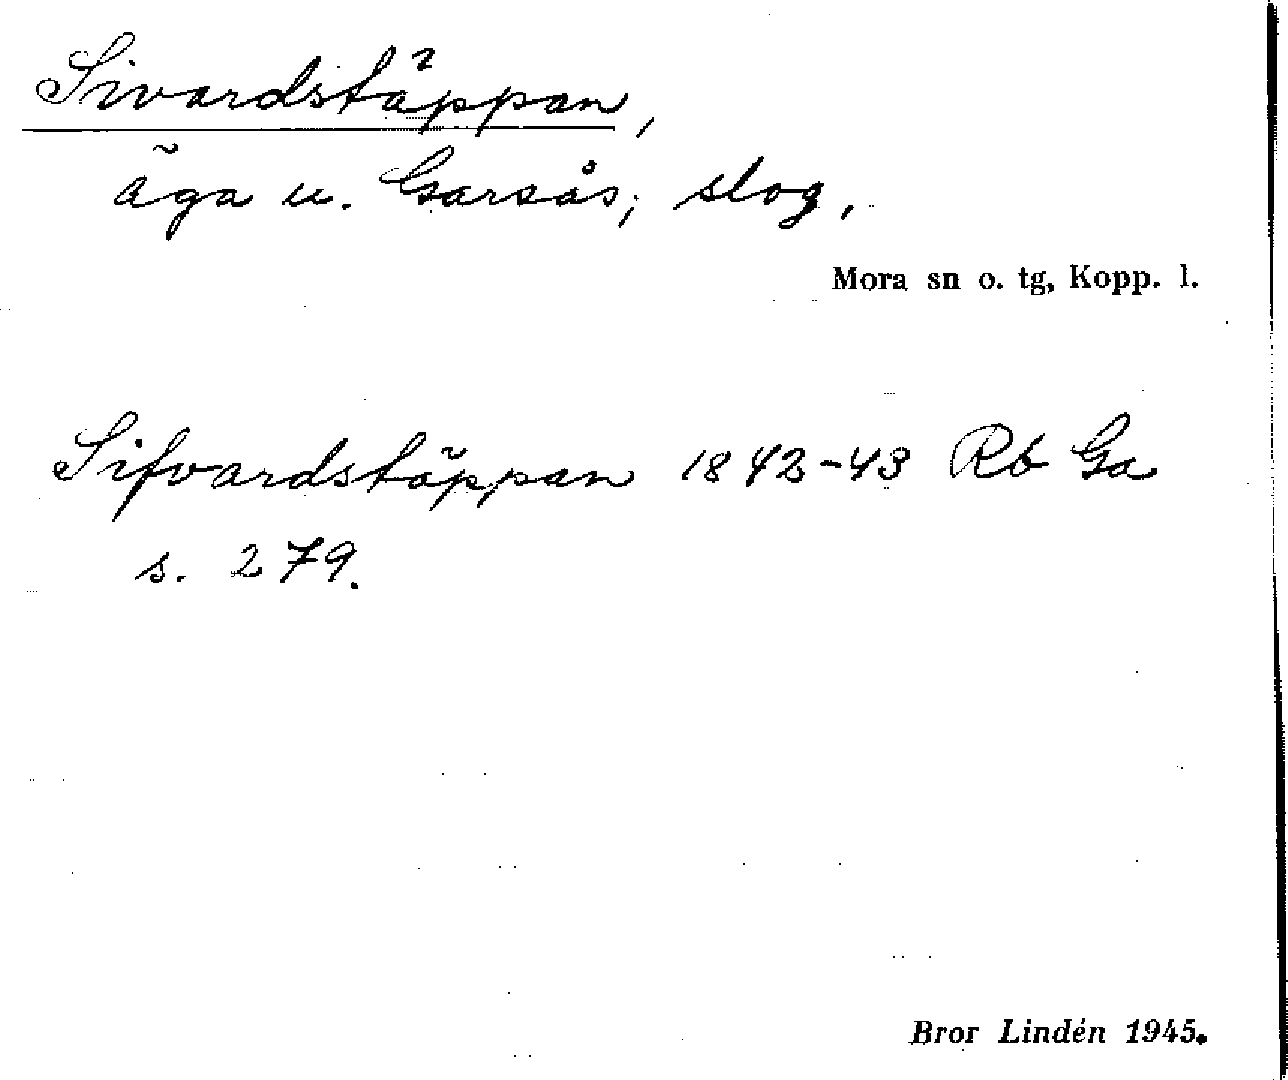 Sivardstäppan,
äga u. Garsås; slog,
Mora sn o. tg, Kopp. l.
Sifvardstäppan 1842-43 Rb Ga
s. 279.
Bror Lindén 1945.